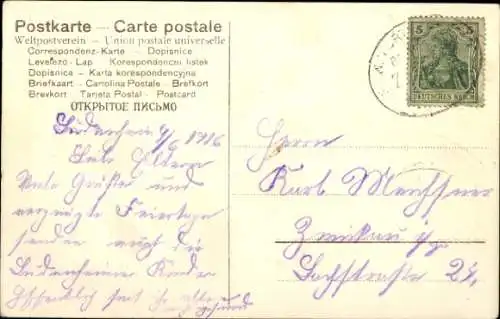 Postkarte — Carte postale
Weltpostverein — Union postale universelle
Correspondenz-Karte — Dopisnice
Levelezö-Lap. Korespondencni listek
Dopisnica — Karta korespondencyjna
Briefkaart - Cartolina Postale - Brefkort
Brevkort - Tarjeta Postal - Postcard
ОТКРЫТОЕ ПИСЬМО
5 5
DEUTSCHES REICH
Südenheim 9/6 1916
Liebe Eltern
Viele Grüße und
vergnügte Feiertage
senden
Südenheimer Kinder
Hoffentlich seit ihr alle
gesund
Herrn
Karl Meichsner
Zwickau
Bachstraße 24.